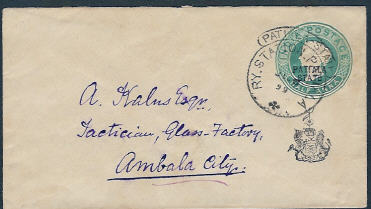 INDIA POSTAGE
HALF ANNA
PATIALA
STATE
(PATIALA
RY. STA
99
A. Kalns Esqr,
Tactician, Glass-Factory,
Ambala City.